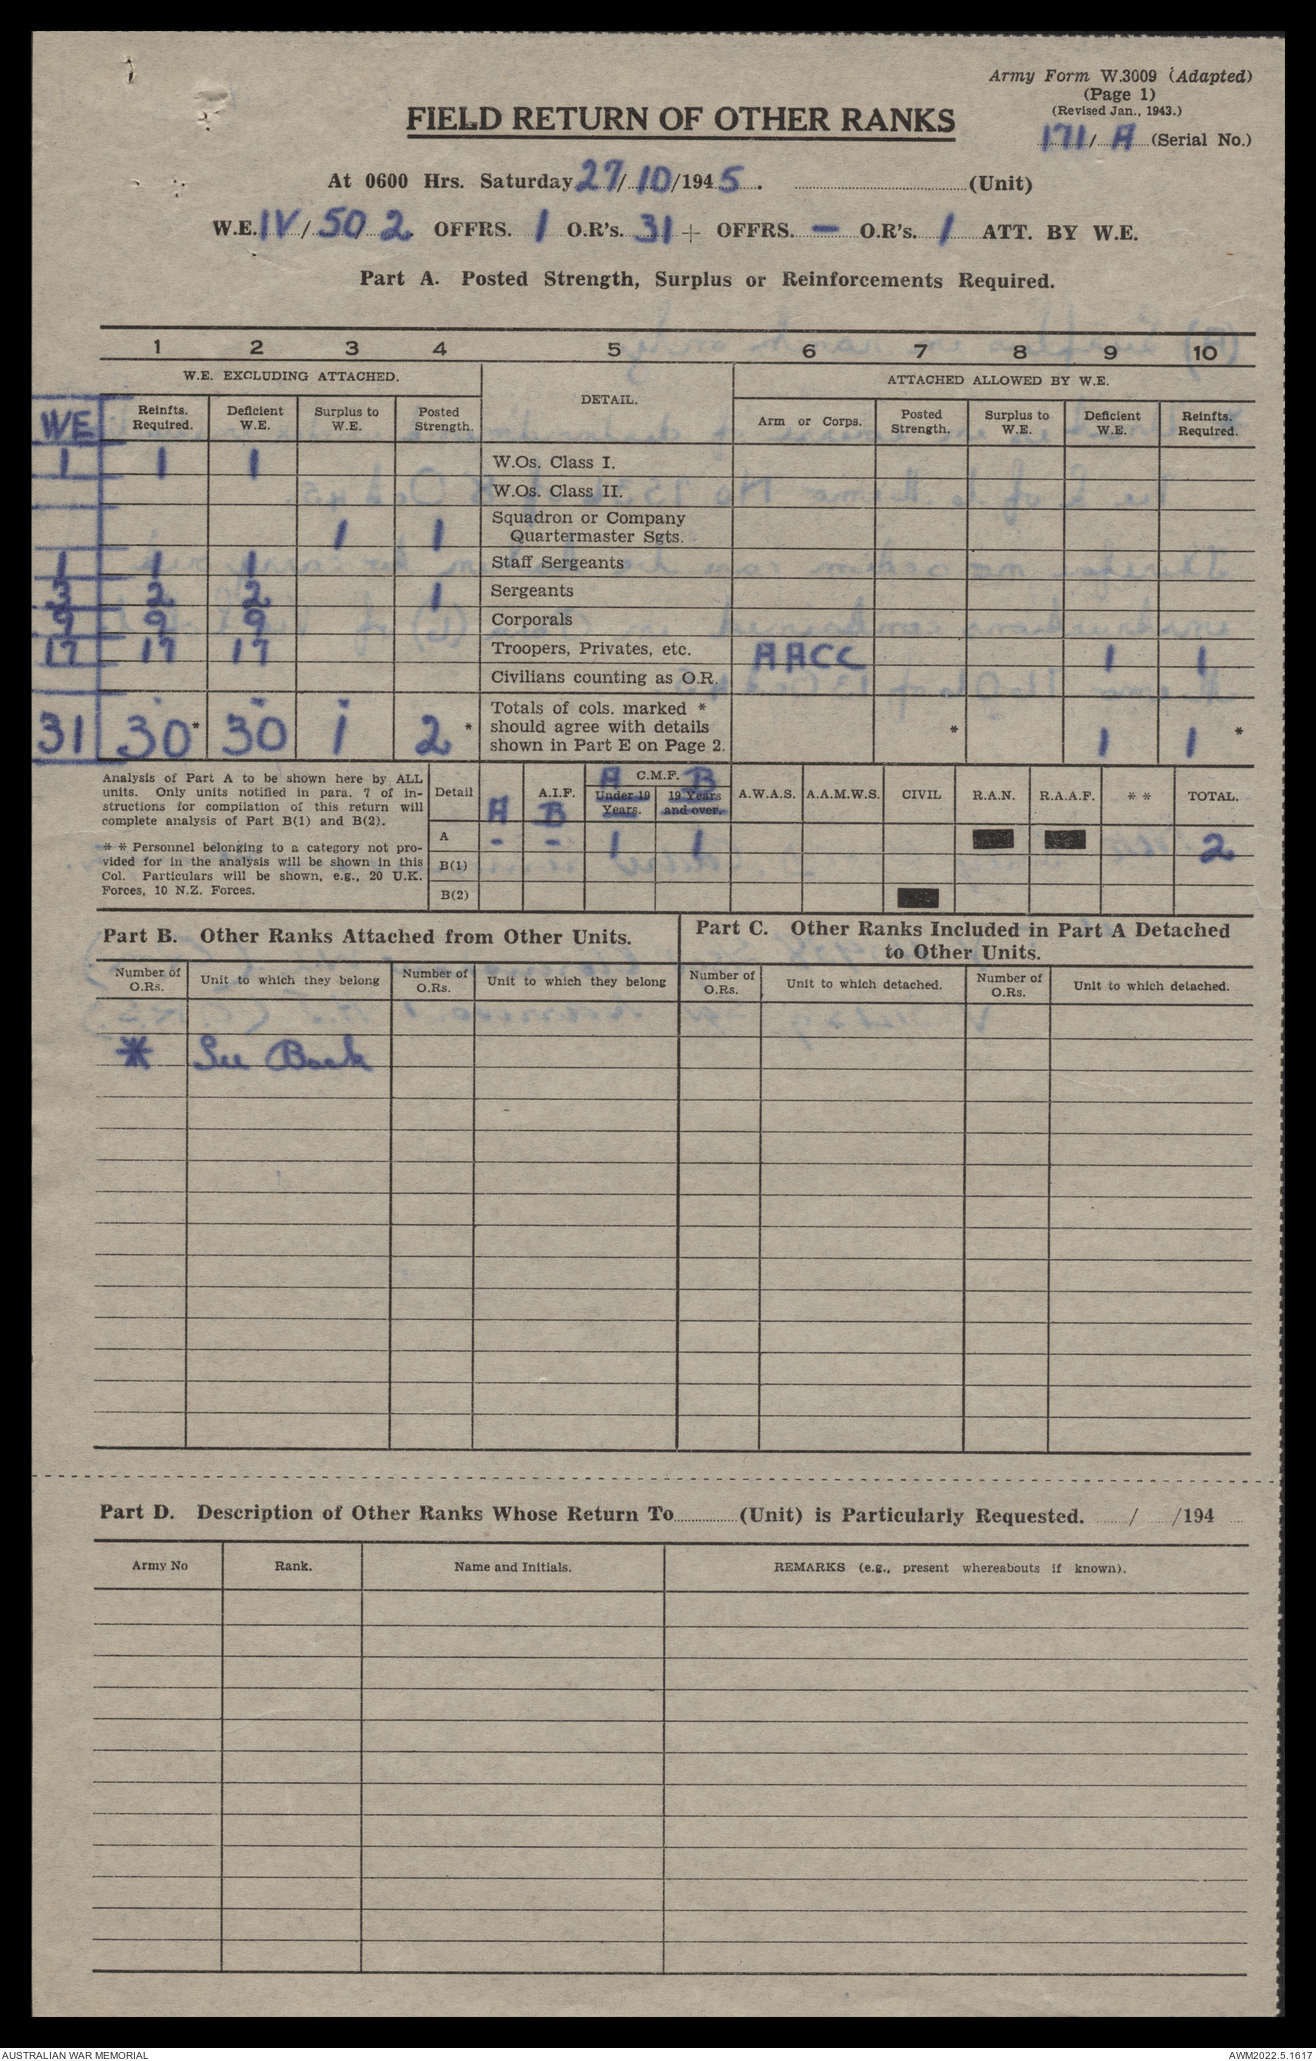 Army Form W.3009 (Adapted)
(Page 1)
(Revised Jan., 1943.)
171/A (Serial No.)
FIELD RETURN OF OTHER RANKS
At 0600 Hrs. Saturday 27/10/1945. (Unit)
W.E. IV/502. OFFRS. 1 O.R's. 31 + OFFRS. — O.R's. 1 ATT. BY W.E.
Part A. Posted Strength, Surplus or Reinforcements Required.
1 2 3 4 5 6 7 8 9 10
W.E. EXCLUDING ATTACHED. DETAIL. ATTACHED ALLOWED BY W.E.
WE Reinfts. Required. Deficient W.E. Surplus to W.E. Posted Strength. Arm or Corps. Posted Strength. Surplus to W.E. Deficient W.E. Reinfts. Required.
1 1 1 W.Os. Class I.
W.Os. Class II.
1 1 Squadron or Company Quartermaster Sgts.
1 1 1 Staff Sergeants
3 2 2 1 Sergeants
9 9 9 Corporals
17 17 17 Troopers, Privates, etc. AACC 1 1
Civilians counting as O.R.
31 30* 30 1 2* Totals of cols. marked * should agree with details shown in Part E on Page 2. * 1 1 *
Analysis of Part A to be shown here by ALL
units. Only units notified in para. 7 of in-
structions for compilation of this return will
complete analysis of Part B(1) and B(2).
* * Personnel belonging to a category not pro-
vided for in the analysis will be shown in this
Col. Particulars will be shown, e.g., 20 U.K.
Forces, 10 N.Z. Forces.
Detail A A.I.F. B C.M.F. A Under 19 Years. B 19 Years and over. A.W.A.S. A.A.M.W.S. CIVIL R.A.N. R.A.A.F. * * TOTAL.
A - - 1 1 2
B(1)
B(2)
Part B. Other Ranks Attached from Other Units.
Part C. Other Ranks Included in Part A Detached
to Other Units.
Number of O.Rs. Unit to which they belong Number of O.Rs. Unit to which they belong Number of O.Rs. Unit to which detached. Number of O.Rs. Unit to which detached.
* See Back
Part D. Description of Other Ranks Whose Return To (Unit) is Particularly Requested. / /194
Army No Rank. Name and Initials. REMARKS (e.g., present whereabouts if known).
AUSTRALIAN WAR MEMORIAL AWM2022.5.1617